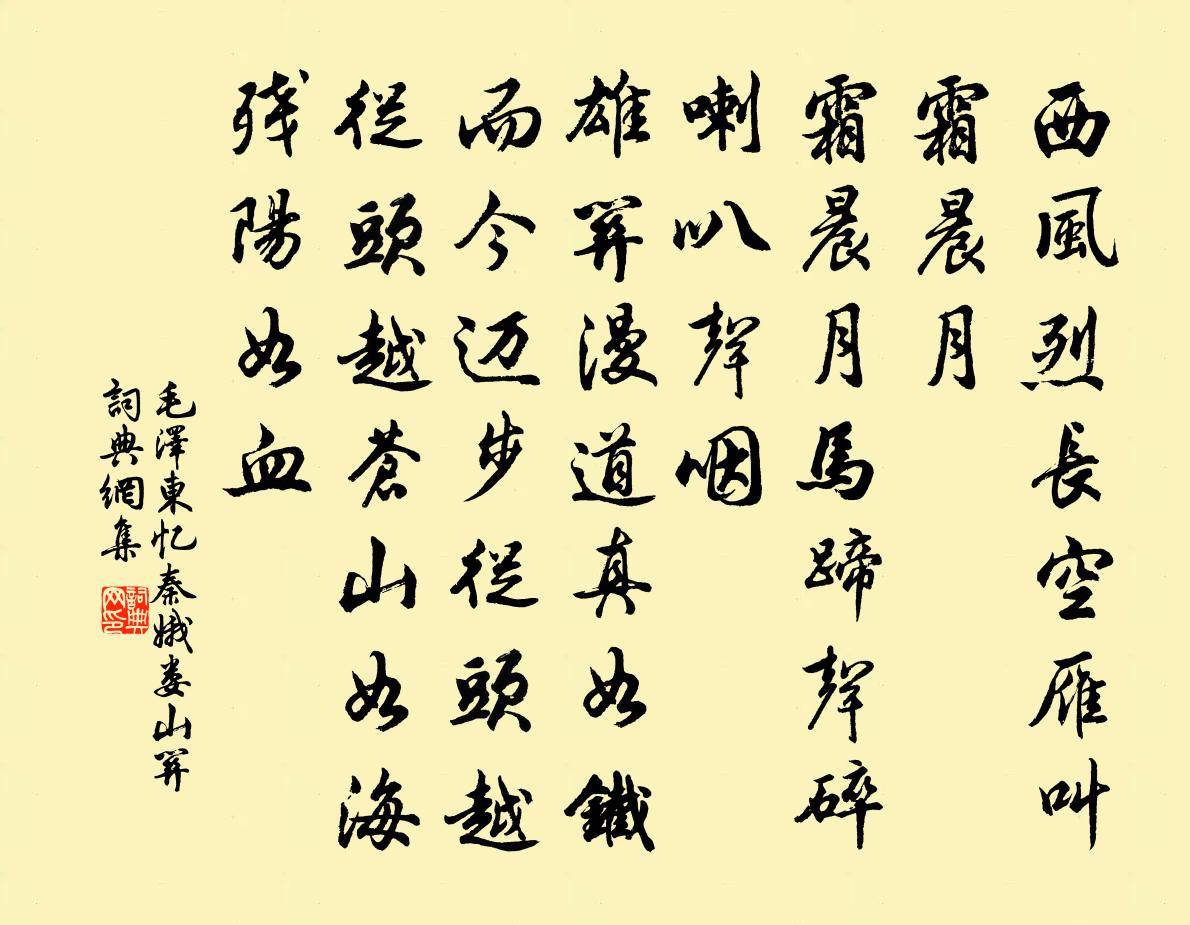 西風烈長空雁叫
霜晨月
霜晨月馬蹄聲碎
喇叭聲咽
雄関漫道真如鐵
而今迈步從頭越
從頭越蒼山如海
残陽如血
毛澤東忆秦娥娄山関
詞典網集
詞典网印